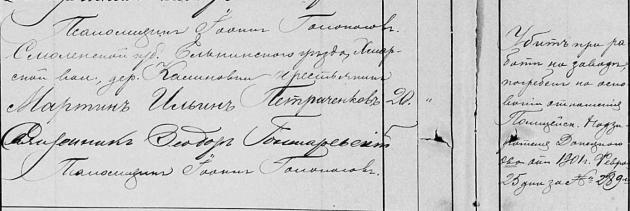 Псаломщикъ Іоаннъ
Смоленской губ. Ельнинскаго уѣзда, Хмар-
ской вол., дер. крестьянинъ
Мартинъ Ильинъ Петраченковъ 20. "
Священникъ Ѳеодоръ Гончаревскій
Псаломщикъ Іоаннъ
Убитъ при ра
ботѣ на заводѣ,
погребенъ на осно
ваніи отношенія
Полицейск. Надзи
рателя Донецкаго
отъ 1901 г. Февра
25 дня за № 289